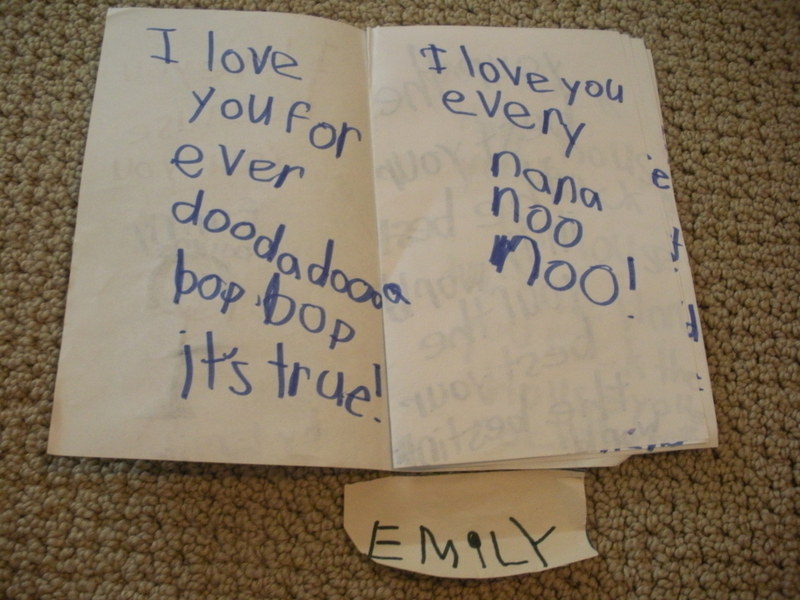 I love
you for
ever
doodadoooa
bop bop
it's true!
I love you
every
nana
noo
noo!
e
d
EMiLY